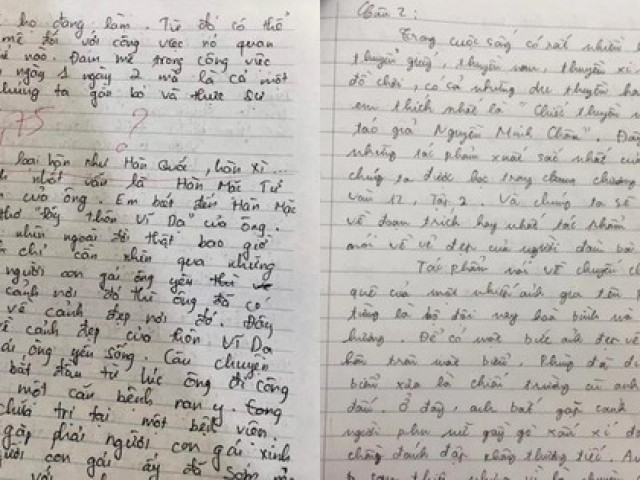 họ đang làm. Từ đó có thể
mê đối với công việc nó quan
nào. Đam mê trong công việc
ngày 1 ngày 2 mà là cả một
chúng ta gắn bó và thực sự
,75 ?
loại hận như Hàn Quốc, hàn xì...
nhất vẫn là Hàn Mặc Tử
của ông. Em biết đến Hàn Mặc
thơ "Đây thôn Vĩ Dạ" của ông.
nhìn ngoài đời thật bao giờ
chỉ cần nhìn qua những
người con gái ông yêu thì
cảnh nơi đó thì ông đã có
về cảnh đẹp nơi đó. Đây
về cảnh đẹp của thôn Vĩ Dạ
gái ông yêu sống. Câu chuyện
bắt đầu từ lúc ông đi công
một căn bệnh nan y. Trong
chữa trị tại một bệnh viện
gặp phải người con gái xinh
người con gái ấy đã sớm
với
Câu 2:
Trong cuộc sống có rất nhiều
thuyền giấy, thuyền nan, thuyền
đồ chơi, có cả những du thuyền
em thích nhất là "Chiếc thuyền
tác giả Nguyễn Minh Châu". Đây
những tác phẩm xuất sắc nhất
chúng ta được học trong chương
văn 12, Tập 2. Và chúng ta sẽ
về đoạn trích hay nhất tác phẩm
nói về vẻ đẹp của người đàn bà
Tác phẩm nói về chuyến
quê của một nhiếp ảnh gia tên
từng là bộ đội nay hoà bình và
hương. Để có một bức ảnh đẹp về
trên mặt biển, Phùng đã
biển xưa là chiến trường cũ anh
đấu. Ở đây, anh bắt gặp cảnh
người phụ nữ gầy gò xấu xí
chồng đánh đập không thương tiếc.